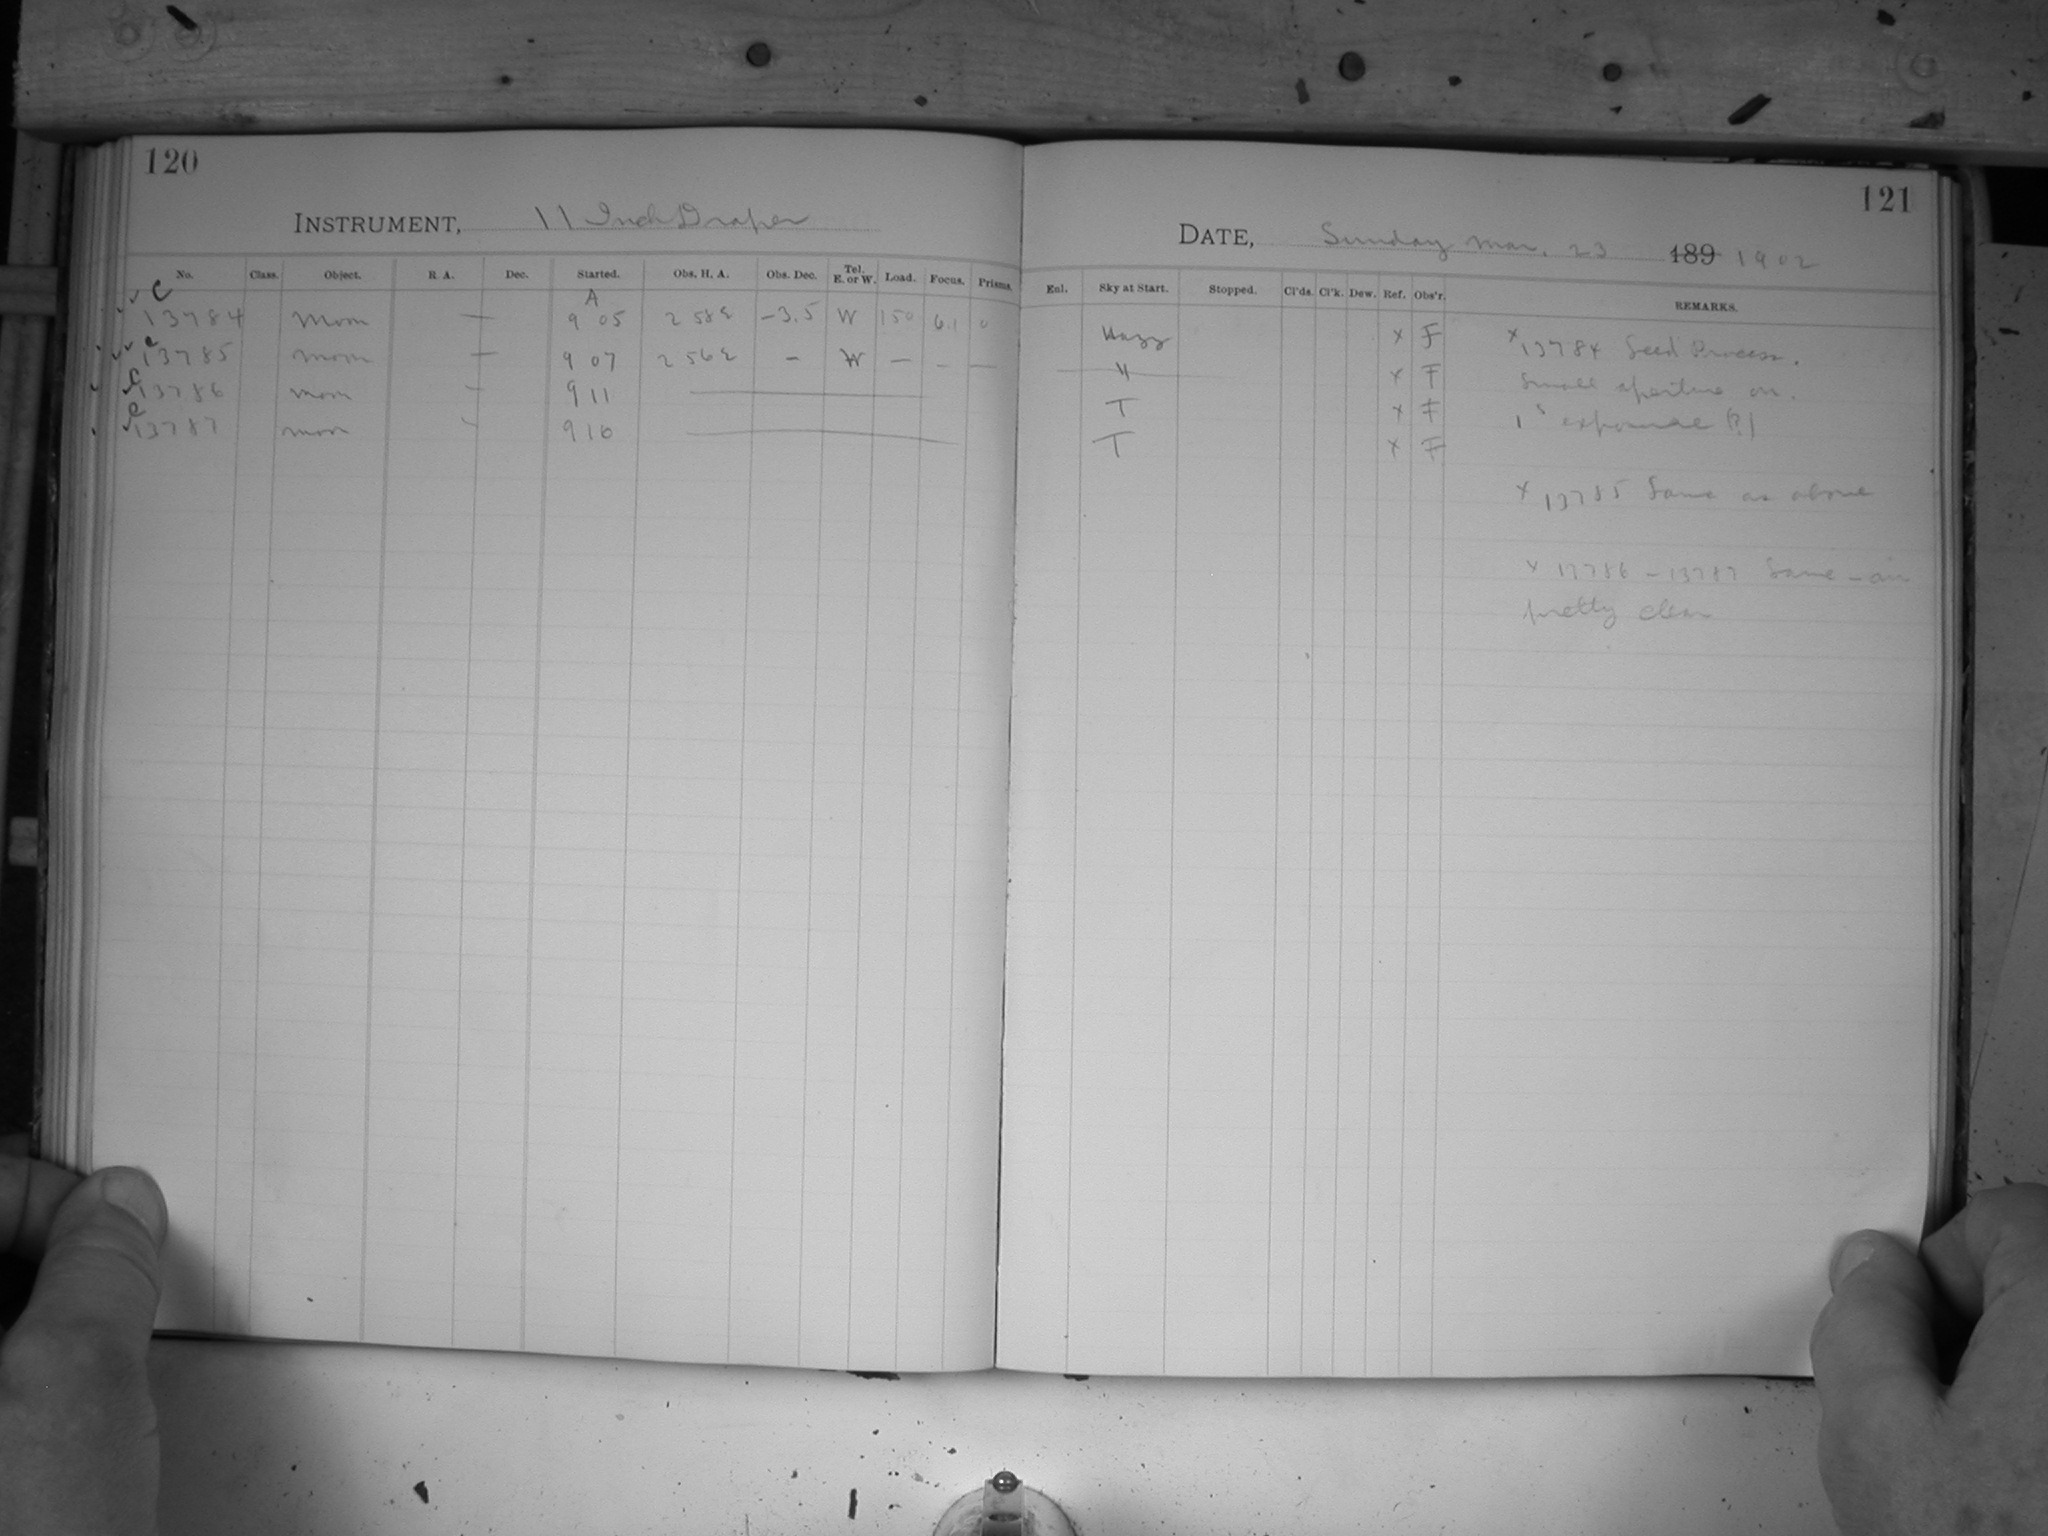 120
INSTRUMENT, 11 Inch Draper
No. Class. Object. R A. Dec. Started. Obs. H. A. Obs. Dec. Tel. E. or W. Load. Focus. Prisms.
A
C 13784 Moon — 9 05 2 58 E −3.5 W 150 6.1 0
C 13785 Moon — 9 07 2 56 E — W — — —
C 13786 Moon 9 11
C 13787 Moon 9 16
121
DATE, Sunday Mar. 23 189 1902
Enl. Sky at Start. Stopped. Cl'ds. Cl'k. Dew. Ref. Obs'r. REMARKS.
Hazy x F x 13784 Seed Process.
" x F Small aperture on.
T x F 1s exposure (?)
T x F
x 13785 Same as above
x 13786 – 13787 Same – air
pretty clear